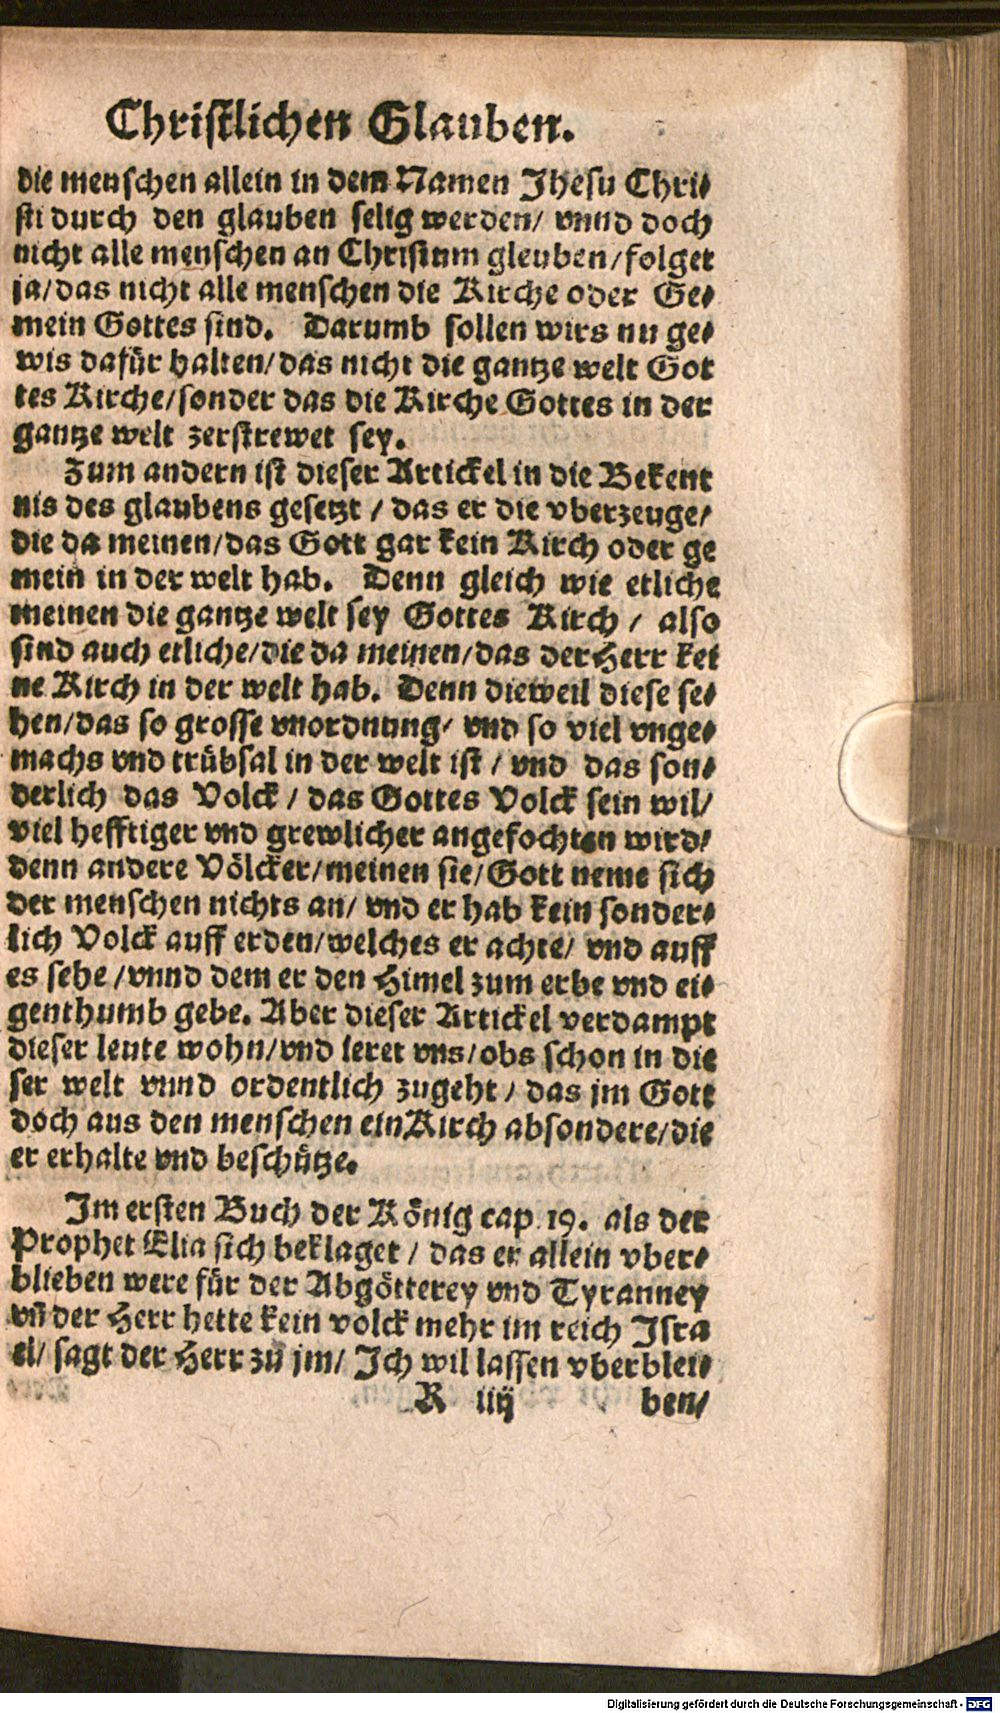 Christlichen Glauben.
die menschen allein in dem Namen Jhesu Chri⸗
sti durch den glauben selig werden/ vnnd doch
nicht alle menschen an Christum gleuben/folget
ja/das nicht alle menschen die Kirche oder Ge⸗
mein Gottes sind. Darumb sollen wirs nu ge⸗
wis dafür halten/das nicht die gantze welt Got
tes Kirche/sonder das die Kirche Gottes in der
gantze welt zerstrewet sey.
Zum andern ist dieser Artickel in die Bekent
nis des glaubens gesetzt / das er die vberzeuge/
die da meinen/das Gott gar kein Kirch oder ge
mein in der welt hab. Denn gleich wie etliche
meinen die gantze welt sey Gottes Kirch / also
sind auch etliche/die da meinen/das der Herr kei
ne Kirch in der welt hab. Denn dieweil diese se⸗
hen/das so grosse vnordnung/ vnd so viel vnge⸗
machs vnd trübsal in der welt ist / vnd das son⸗
derlich das Volck / das Gottes Volck sein wil/
viel hefftiger vnd grewlicher angefochten wird/
denn andere Völcker/meinen sie/Gott neme sich
der menschen nichts an/ vnd er hab kein sonder⸗
lich Volck auff erden/welches er achte/ vnd auff
es sehe /vnnd dem er den Himel zum erbe vnd ei⸗
genthumb gebe. Aber dieser Artickel verdampt
dieser leute wohn/vnd leret vns/obs schon in die
ser welt vnnd ordentlich zugeht / das jm Gott
doch aus den menschen ein Kirch absondere/die
er erhalte vnd beschütze.
Im ersten Buch der König cap. 19. als der
Prophet Elia sich beklaget / das er allein vber⸗
blieben were für der Abgötterey vnd Tyranney
vn̄ der Herr hette kein volck mehr im reich Jsra
el/ sagt der Herr zu jm/ Jch wil lassen vberblei⸗
R iiij ben/
Digitalisierung gefördert durch die Deutsche Forschungsgemeinschaft - DFG